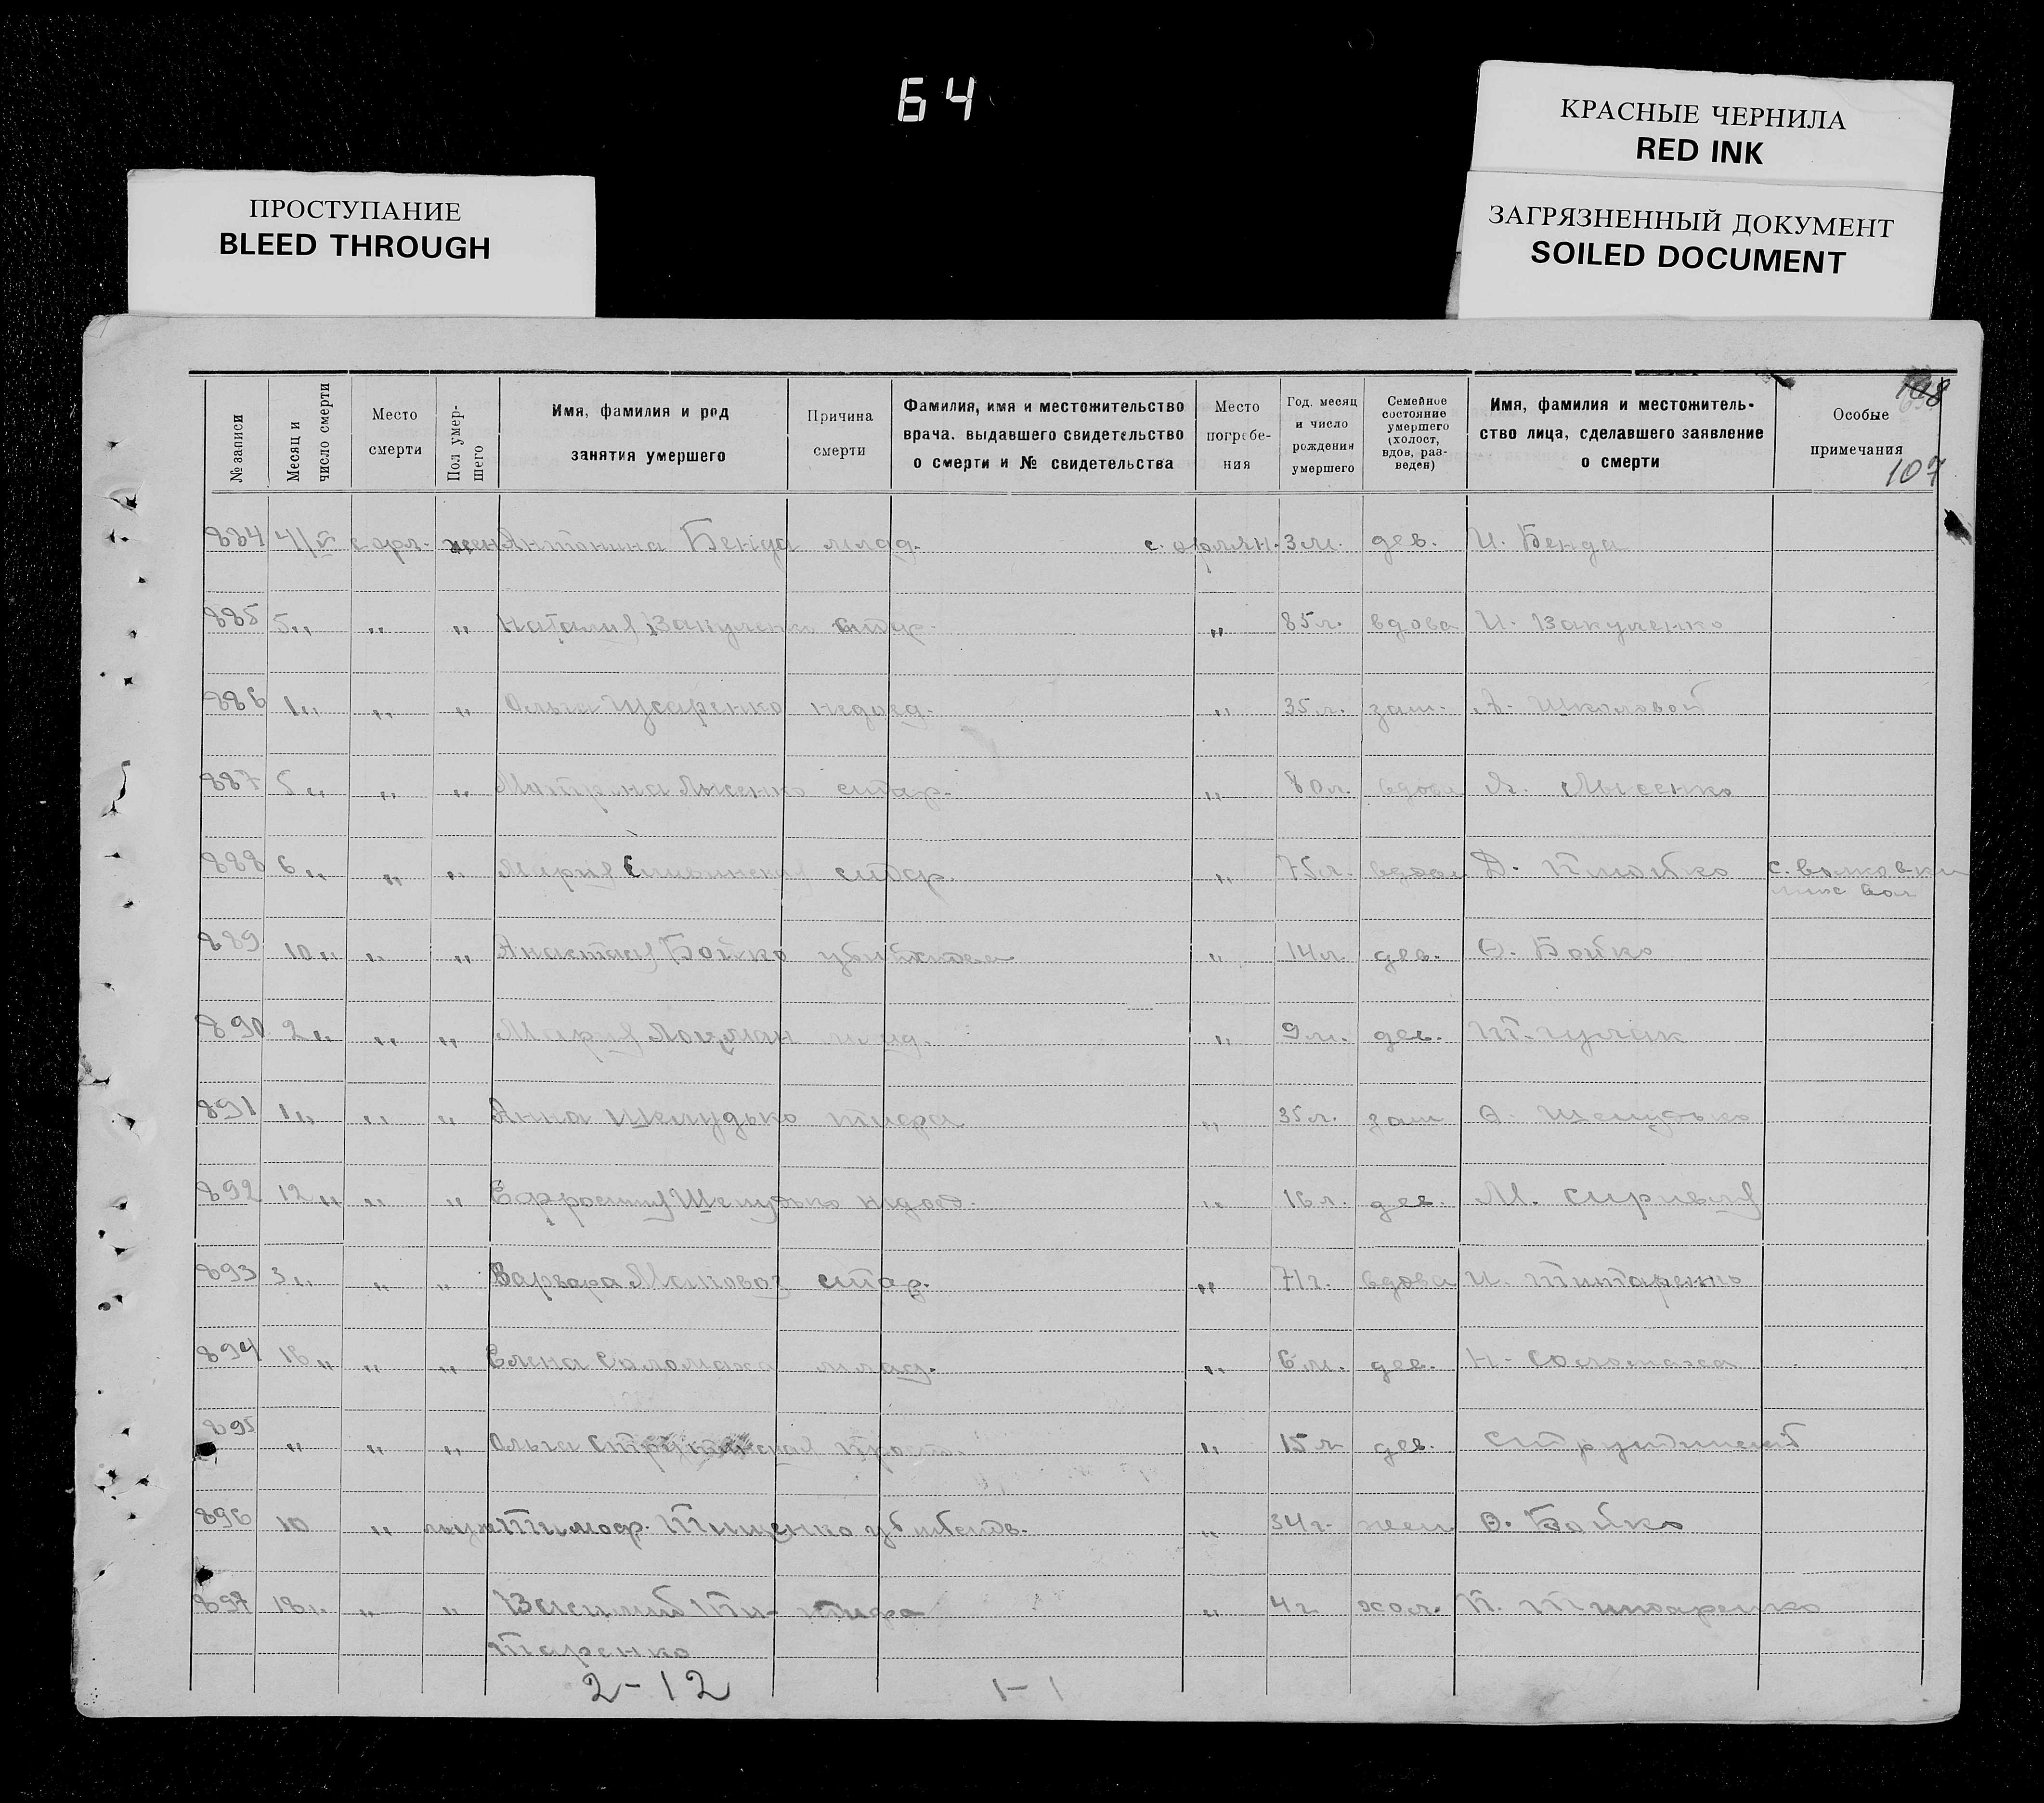 64
КРАСНЫЕ ЧЕРНИЛА
RED INK
ПРОСТУПАНИЕ
BLEED THROUGH
ЗАГРЯЗНЕННЫЙ ДОКУМЕНТ
SOILED DOCUMENT
108
107
№ записи
Месяц и число смерти
Место смерти
Пол умер-шего
Имя, фамилия и род занятия умершего
Причина смерти
Фамилия, имя и местожительство врача, выдавшего свидетельство о смерти и № свидетельства
Место погребе-ния
Год, месяц и число рождения умершего
Семейное состояние умершего (холост, вдов, раз-веден)
Имя, фамилия и местожитель-ство лица, сделавшего заявление о смерти
Особые примечания
884 4/V с. орл. жен Антонина Бенда млад. с. орлян. 3 м. дев. И. Бенда
885 5 „ „ „ Наталия Вакуленко стар. „ 85 л. вдова И. Вакуленко
886 1 „ „ „ Ольга Гусаренко недоед. „ 35 л. зам.
887 5 „ „ „ стар. „ 80 л. вдова
888 6 „ „ „ Мария стар. „ 75 л. вдова Д.
889 10 „ „ „ Анастас Бойко убийства „ 14 л. дев. Ѳ. Бойко
890 2 „ „ „ Мария Лоцман млад. „ 9 м. дев. Гулак
891 1 „ „ „ Анна Шелудько тифа „ 35 л. зам Ѳ. Шелудько
892 12 „ „ „ Шелудько „ 16 л. дев. М.
893 3 „ „ „ Варвара стар. „ 71 г. вдова И. Титаренко
894 16 „ „ „ Елена Соломаха млад. „ 6 м. дев. Н. Соломаха
895 „ „ „ Ольга „ 15 л дев.
896 10 „ муж Тимоф. Тищенко убийств. „ 34 г. жен Ѳ. Бойко
897 18 „ „ „ Василий Ти- тифа „ 4 г хол. Титаренко
таренко
2-12 1-1